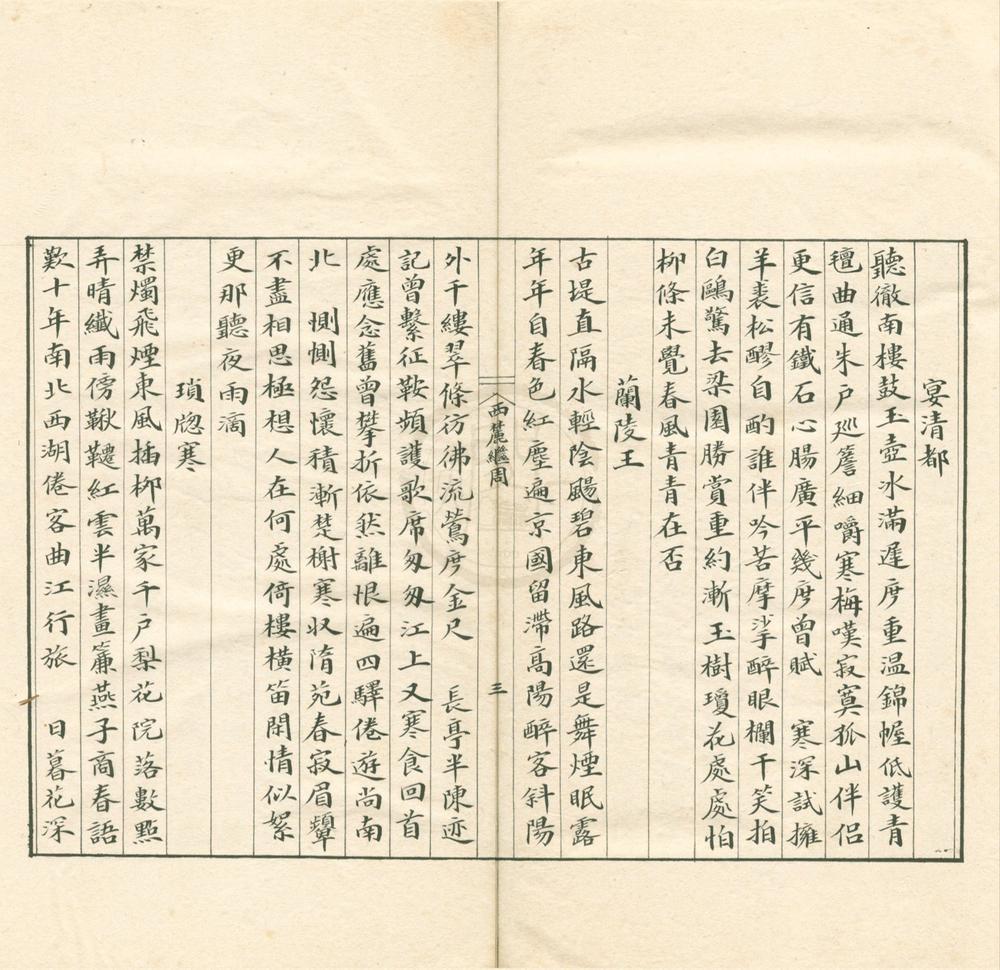 宴清都
聽徹南樓鼓玉壺冰滿遲度重温錦幄低護青
氊曲通朱戸廵簷細嚼寒梅嘆寂寞孤山伴侣
更信有鐵石心腸廣平幾度曾賦　寒深試擁
羊裘松醪自酌誰伴吟苦摩挲醉眼欄干笑拍
白鷗驚去梁園勝賞重約漸玉樹瓊花處處怕
柳條未覺春風青青在否
蘭陵王
古堤直隔水輕陰颺碧東風路還是舞煙眠露
年年自春色紅塵遍京國留滯高陽醉客斜陽
外千縷翠條彷彿流鶯度金尺　長亭半陳迹
記曾繫征鞍頻護歌席匆匆江上又寒食回首
處應念舊曾攀折依然離恨遍四驛倦遊尚南
北　惻惻怨懷積漸楚榭寒收隋苑春寂眉顰
不盡相思極想人在何處倚樓横笛閑情似絮
更那聽夜雨滴
瑣牕寒
禁燭飛煙東風插柳萬家千戸梨花院落數點
弄晴纖雨傍鞦韆紅雲半濕畫簾燕子商春語
歎十年南北西湖倦客曲江行旅　日暮花深
西麓繼周
三